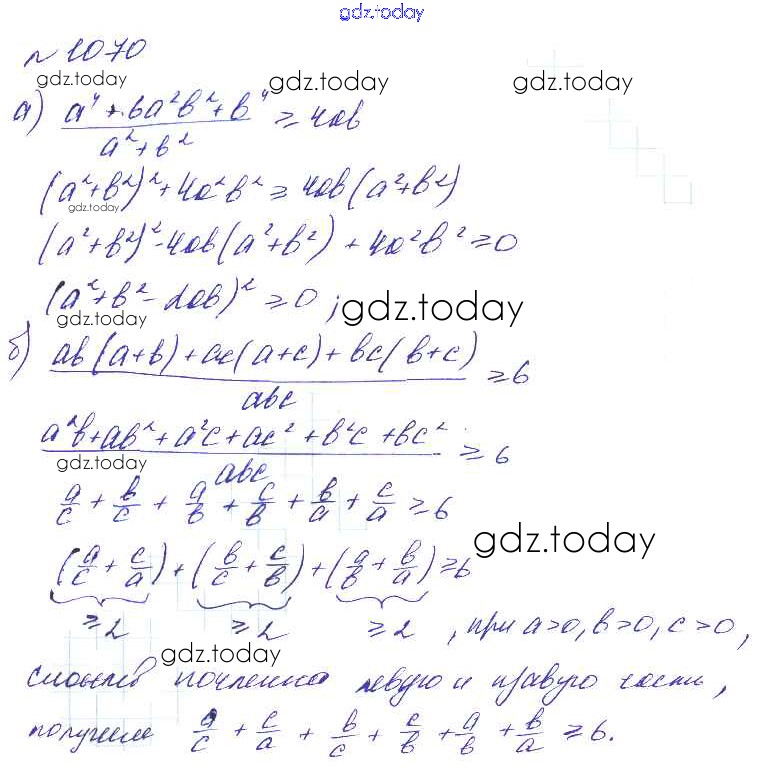 gdz.today
№ 1070
gdz.today gdz.today gdz.today
а) (a⁴ + 6a²b² + b⁴)/(a² + b²) ≥ 4ab
(a²+b²)² + 4a²b² ≥ 4ab(a²+b²)
gdz.today
(a²+b²)² - 4ab(a²+b²) + 4a²b² ≥ 0
(a²+b² - 2ab)² ≥ 0;
gdz.today gdz.today
б) (ab(a+b) + ac(a+c) + bc(b+c))/abc ≥ 6
(a²b + ab² + a²c + ac² + b²c + bc²)/abc ≥ 6
gdz.today
a/c + b/c + a/b + c/b + b/a + c/a ≥ 6
gdz.today
(a/c + c/a) + (b/c + c/b) + (a/b + b/a) ≥ 6
≥2 ≥2 ≥2, при a>0, b>0, c>0,
gdz.today
сложив почленно левую и правую части,
получим a/c + c/a + b/c + c/b + a/b + b/a ≥ 6.